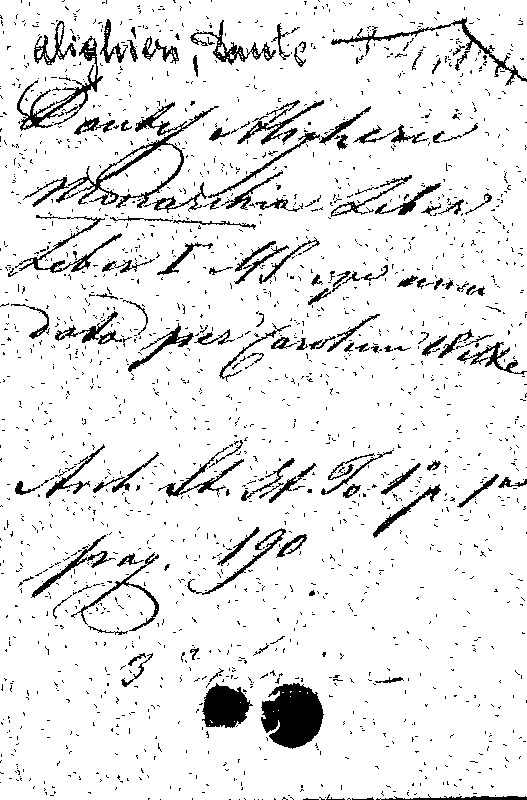 Alighieri, Dante
Dantis Aligherii
Monarchia Liber
Liber I MS.
data per Carolum Witke
Arch. St. It. To. 1º p. 1ª
pag. 190
3